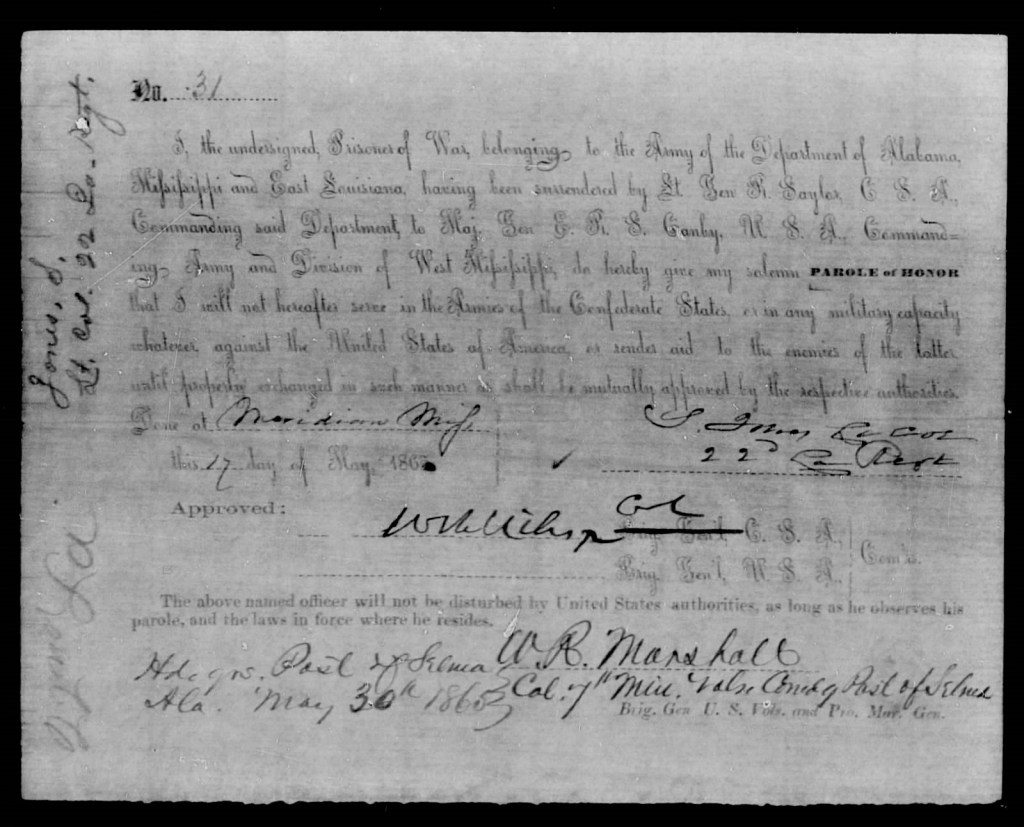 No. 31
I, the undersigned, Prisoner of War, belonging to the Army of the Department of Alabama,
Mississippi and East Louisiana, having been surrendered by Lt. Gen R. Taylor, C. S. A.,
Commanding said Department, to Maj. Gen E. R. S. Canby, U. S. A., Command=
ing Army and Division of West Mississippi, do hereby give my solemn PAROLE of HONOR
that I will not hereafter serve in the Armies of the Confederate States, or in any military capacity
whatever, against the United States of America, or render aid to the enemies of the latter,
until properly exchanged in such manner as shall be mutually approved by the respective authorities.
Done at Meridian Miss
this 17 day of May, 1865
S. Jones Lt Col
22d La Regt
Approved:
Col
Brig. Gen'l, C. S. A.,
Brig. Gen'l, U. S. A.,
Com'rs.
The above named officer will not be disturbed by United States authorities, as long as he observes his
parole, and the laws in force where he resides.
Hdqrs. Post of Selma
Ala. May 30th 1865
W. R. Marshall
Col. 7th Min. Vols. Comdg Post of Selma
Brig. Gen U. S. Vols. and Pro. Mar. Gen.
Jones, S.
Lt. Col. 22 La. Regt.
22nd La